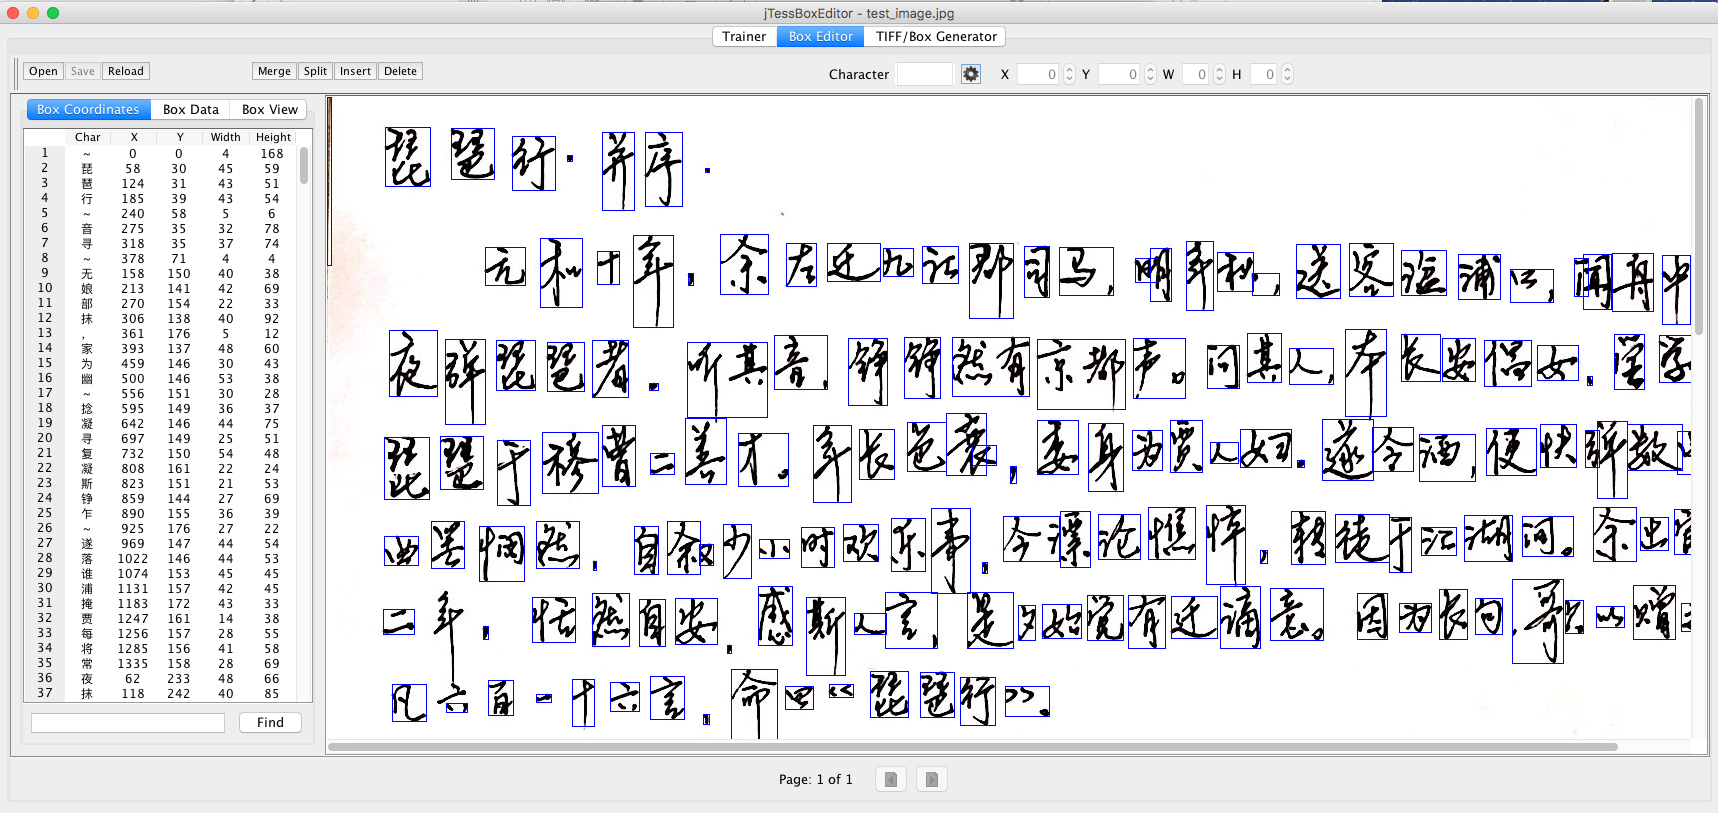 jTessBoxEditor - test_image.jpg
Trainer Box Editor TIFF/Box Generator
Open Save Reload Merge Split Insert Delete Character X 0 Y 0 W 0 H 0
Box Coordinates Box Data Box View
Char X Y Width Height
1 ~ 0 0 4 168
2 琵 58 30 45 59
3 琶 124 31 43 51
4 行 185 39 43 54
5 ~ 240 58 5 6
6 音 275 35 32 78
7 寻 318 35 37 74
8 ~ 378 71 4 4
9 无 158 150 40 38
10 娘 213 141 42 69
11 部 270 154 22 33
12 抹 306 138 40 92
13 , 361 176 5 12
14 家 393 137 48 60
15 为 459 146 30 43
16 幽 500 146 53 38
17 ~ 556 151 30 28
18 捻 595 149 36 37
19 凝 642 146 44 75
20 寻 697 149 25 51
21 复 732 150 54 48
22 凝 808 161 22 24
23 斯 823 151 21 53
24 铮 859 144 27 69
25 乍 890 155 36 39
26 ~ 925 176 27 22
27 遂 969 147 44 54
28 落 1022 146 44 53
29 谁 1074 153 45 45
30 浦 1131 157 42 45
31 掩 1183 172 43 33
32 贾 1247 161 14 38
33 每 1256 157 28 55
34 将 1285 156 41 58
35 常 1335 158 28 69
36 夜 62 233 48 66
37 抹 118 242 40 85
Find
琵琶行·并序.
元和十年,余左迁九江郡司马,明年秋,送客湓浦口,闻舟中
夜弹琵琶者.听其音,铮铮然有京都声。问其人,本长安倡女,尝学
琵琶于穆曹二善才。年长色衰,委身为贾人妇.遂令酒,使快弹数
曲毕悯然.自叙少小时欢乐事,今漂沦憔悴,转徙于江湖间。余出官
二年,恬然自安,感斯人言,是夕始觉有迁谪意。因为长句,歌以赠
凡六百一十六言,命曰<<琵琶行>>。
Page: 1 of 1